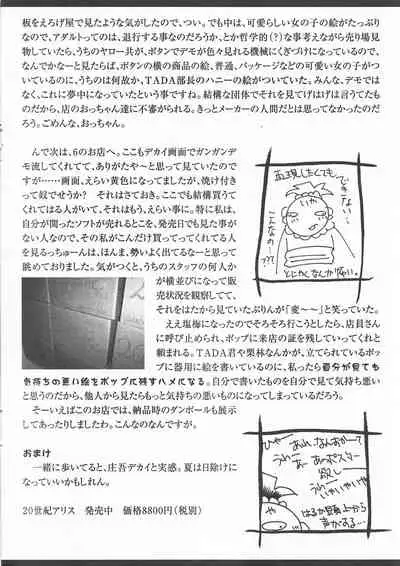 板をえろげ屋で見たような気がしたので、つい。でも中は、可愛らしい女の子の絵がたっぷり
なので、アダルトってのは、退行する事なのだろうか、とか哲学的（？）な事考えながら売り場見
物していたら、うちのヤロー共が、ボタンでデモが色々見れる機械にくぎづけになっているので、
なんでかなーと見たらば、ボタンの横の商品の絵、普通、パッケージなどの可愛い女の子がつ
いているのに、うちのは何故か、TADA部長のハニーの絵がついていた。みんな、デモではな
く、これに夢中になっていたという事ですね。結構な団体でそれを見てげはげは言うてたも
のだから、店のおっちゃん達に不審がられる。きっとメーカーの人間だとは思ってなかったのだ
ろう。ごめんな、おっちゃん。
んで次は、6のお店へ。ここもデカイ画面でガンガンデ
モ流してくれてて、ありがたや〜と思って見ていたので
すが……画面、えらい黄色になってましたが、焼け付き
って奴でせうか？ それはさておき。ここでも結構買うて
くれてはる人がいて、それはもう、えらい事に。特に私は、
自分が関ったソフトが売れるとこを、発売日でも見た事が
ない人なので、その私がこんだけ買ってってくれてる人
を見るっちゅーんは、ほんま、勢いよく出てるなーと思って
眺めておりました。気がつくと、うちのスタッフの何人か
が横並びになって販
売状況を観察してて、
それをはたから見ていたぷりんが「変〜〜」と笑っていた。
ええ塩梅になったのでそろそろ行こうとしたら、店員さん
に呼び止められ、ポップに来店の証を残していってくれと
頼まれる。TADA君や栗林なんかが、立てられているポッ
プに器用に絵を書いているのに、私ったら自分が見ても
気持ちの悪い絵をポップに残すハメになる。自分で書いたものを自分で見て気持ち悪い
と思うのだから、他人から見たらもっと気持ちの悪いものになってしまっているだろう。
そーいえばこのお店では、納品時のダンボールも展示
してあったりしましたわ。こんなのなんですが。
おまけ
一緒に歩いてると、庄吾デカイと実感。夏は日除けに
なっていいかもしれん。
20世紀アリス 発売中 価格8800円（税別）
再現したくても
できない…
いや
こんなの〜???
とにかくなんか怖い。
ひゃー
うわー
あーあのポスター
欲し
うわー
いやいやいや
や
はるか頭上から
声がする…